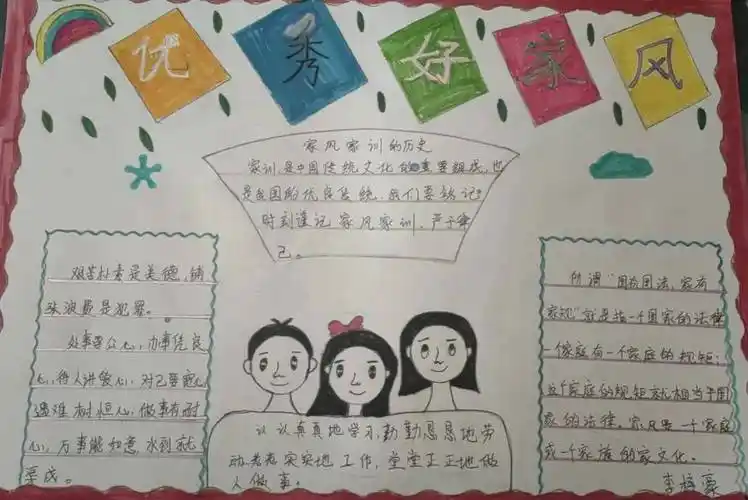 优秀好家风
家风家训的历史
家训是中国传统文化的重要组成,也
是我国的优良传统,我们要铭记
时刻谨记家风家训,严于律
己。
艰苦朴素是美德,铺
张浪费是犯罪。
处事要公心,办事凭良
心,待人讲爱心,对己要宽心
遇难树恒心,做事有耐
心,万事能如意,水到就
渠成。
认认真真地学习,勤勤恳恳地劳
动,老老实实地工作,堂堂正正地做
人做事。
所谓“国有国法,家有
家规”就是指一个国家的法律
一个家庭有一个家庭的规矩;
这个家庭的规矩就相当于国
家的法律。家风是一个家庭
或一个家族的家文化。
李 豪